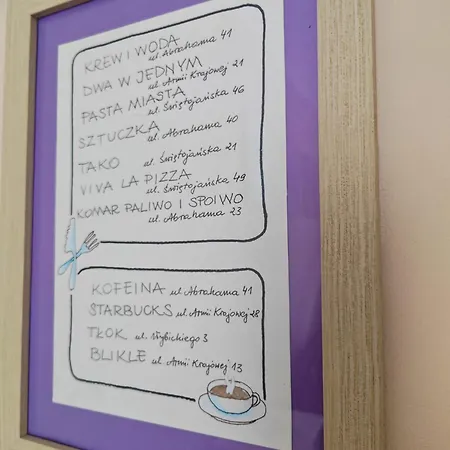 KREW I WODA
ul. Abrahama 41
DWA W JEDNYM
ul. Armii Krajowej 21
PASTA MIASTA
ul. Świętojańska 46
SZTUCZKA
ul. Abrahama 40
TAKO ul. Świętojańska 21
VIVA LA PIZZA
ul. Świętojańska 49
KOMAR PALIWO I SPOIWO
ul. Abrahama 23
KOFEINA ul Abrahama 41
STARBUCKS ul Armii Krajowej 28
TŁOK ul. Wybickiego 3
BLIKLE ul. Armii Krajowej 13